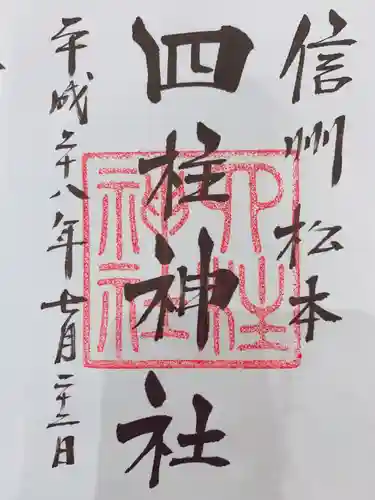 信州松本
四柱神社
四柱神社
平成二十八年七月二十二日